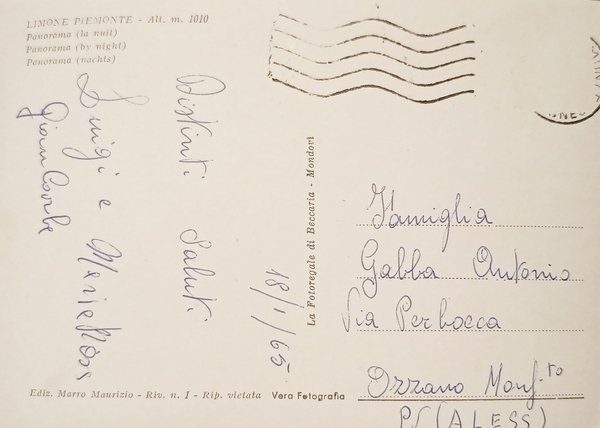 LIMONE PIEMONTE - Alt. m. 1010
Panorama (la nuit)
Panorama (by night)
Panorama (nachts)
Distinti Saluti
Luigi e
18/1/65
La Fotoregale di Beccaria - Mondovì
Famiglia
Gabba Antonio
Via Perbocca
Ozzano Monf.to
(ALESS)
Ediz. Marro Maurizio - Riv. n. 1 - Rip. vietata
Vera Fotografia